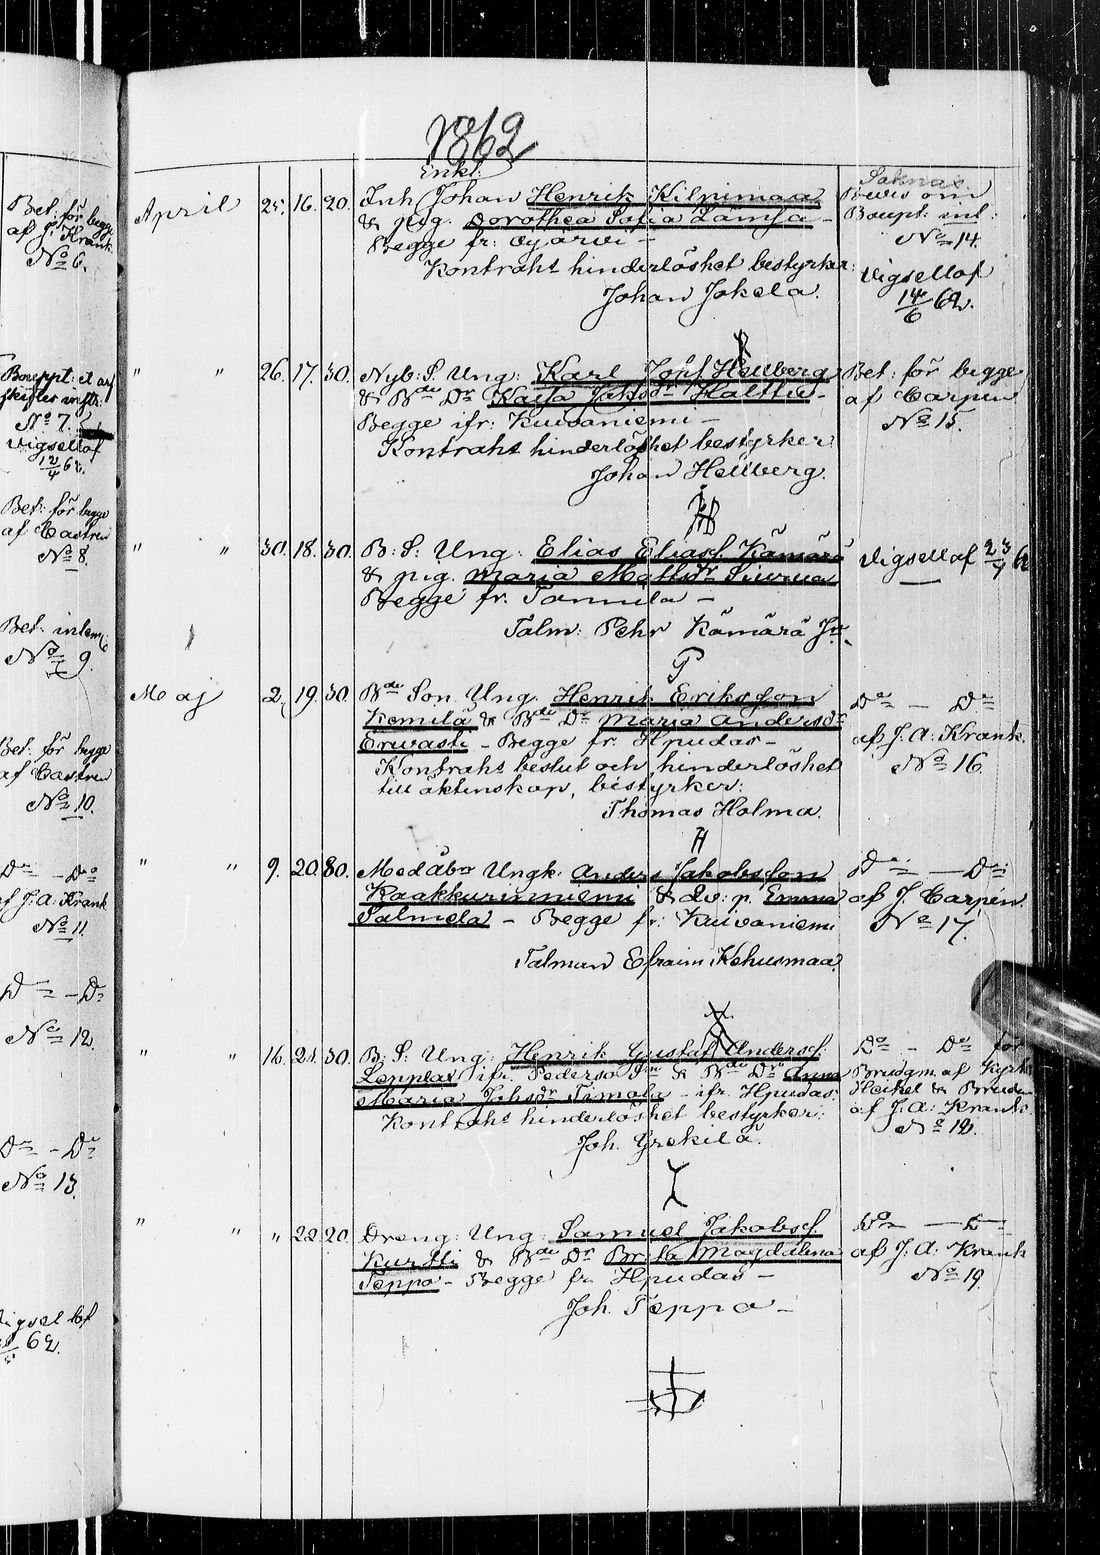 Bet: för begge
af J. Krank
No 6.
No 7.
Vigsell af
12/4 62.
Bet: för begge
af Castren
No 8.
Bet. intem:
No 9.
Bet: för begge
af Castren
No 10.
Do — Do
af J. A. Krank
No 11.
Do — Do
No 12.
Do — Do
No 13.
62.
1862
Enkl.
April 25. 16. 20. Inh Johan Henrik Kilpimaa
& pig. Dorothea Sofia Lamsa —
Begge fr: Oijärvi —
Kontrakt hinderlöshet bestyrker:
Johan Jokela.
Saknas.
Bevis om
Boupt: inl:
No 14.
Vigsell af
14/6 62.
" " 26. 17. 30. Nyb: S. Ung: Karl Johsf Hellberg
& Bde Dr Kaisa Jaksdr Halttu —
Begge ifr: Kuivaniemi —
Kontrakt hinderlöshet bestyrker
Johan Hellberg.
Bet: för begge
af Carpen
No 15.
" " 30. 18. 30. B: S: Ung: Elias Eliasf. Kämärä
& pig. Maria Mattsdr Siurua
Begge fr. Tannila —
Talm: Pehr Kämärä
Vigsell af 23/4 62
Maj 2. 19. 30. Bde Son Ung. Henrik Eriksson
Kemilä & Bde Dr Maria Andersdr
Erwasti — Begge fr. Hpudas —
Kontrakt beslut och hinderlöshet
till äktinskap, bestyrker:
Thomas Holma.
Do — Do
af J. A: Krank.
No 16.
" " 9. 20. 80. Medåbo Ungk: Anders Jakobsson
Kaakkuriniemi & Qv: p. Emma
Salmela — Begge fr: Kuivaniemi
Talman Efraim Kehusmaa.
Do — Do
af J. Carpén
No 17.
" " 16. 21. 30. B: S: Ung: Henrik Gustaf Andersf.
Lepplax ifr. Pedersö & Bde Dr Anna
Maria Johsdr Timola — ifr. Hpudas.
Kontrakt hinderlöshet bestyrker:
Joh. Grekilä.
Do — Do för
Brudgm. af Kyrkh
Heikel & Bruden
af J. A: Krank.
No 18.
" " " 22. 20. Dreng: Ung: Samuel Jakobsf.
Kurtti & Bde Dr Brita Magdalena
Teppo — Begge fr. Hpudas —
Joh. Teppo —
Do — Do
af J. A: Krank
No 19.